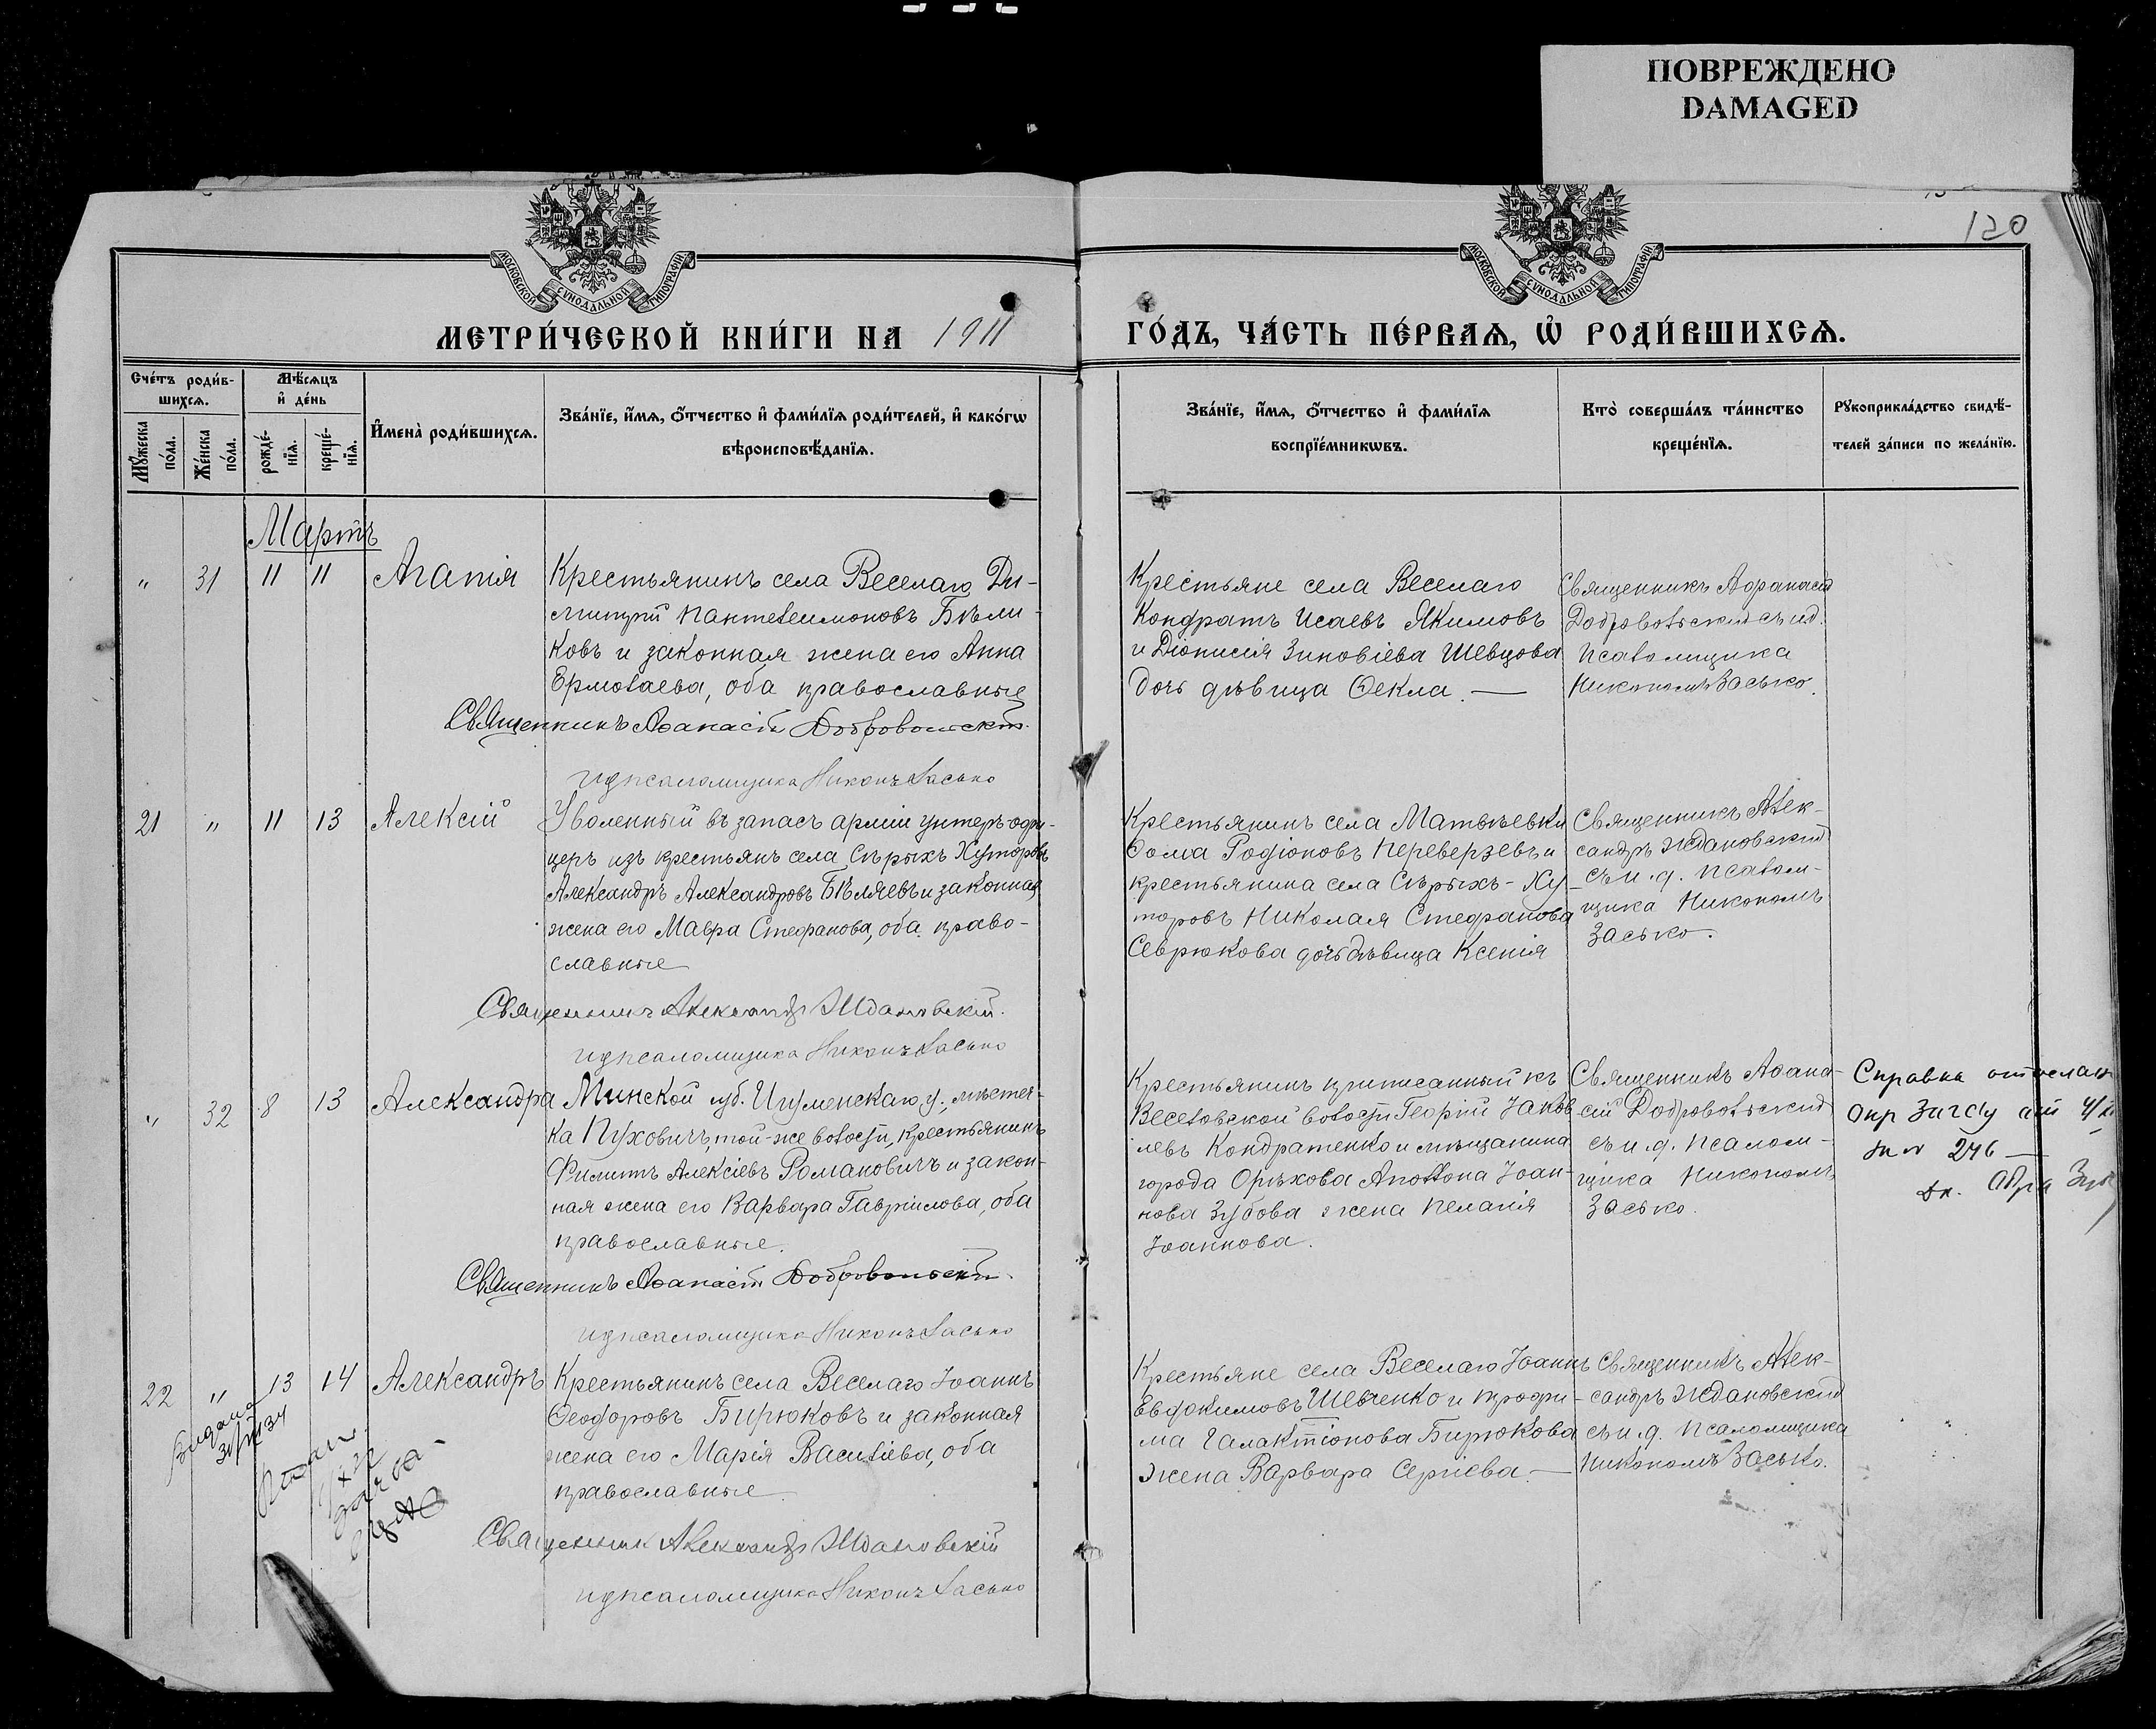 ПОВРЕЖДЕНО
DAMAGED
120
МОСКОВСКОЙ СѴНОДАЛЬНОЙ ТИПОГРАФІИ
МОСКОВСКОЙ СѴНОДАЛЬНОЙ ТИПОГРАФІИ
МЕТРИ́ЧЕСКОЙ КНИ́ГИ НА 1911
ГО́ДЪ, ЧА́СТЬ ПЕ́РВАѦ, Ѡ҆ РОДИ́ВШИХСѦ.
Сче́тъ роди́в-
шихсѧ.
Мꙋ́жеска по́ла.
Же́нска по́ла.
Мѣ́сѧцъ
и҆ де́нь
рожде́-
нїѧ.
креще́-
нїѧ.
И҆мена̀ роди́вшихсѧ.
Зва́нїе, и҆́мѧ, ѻ҆́тчество и҆ фами́лїѧ роди́телей, и҆ како́гѡ
вѣроисповѣ́данїѧ.
Зва́нїе, и҆́мѧ, ѻ҆́тчество и҆ фами́лїѧ
воспрїе́мникѡвъ.
Кто̀ соверша́лъ та́инство
креще́нїѧ.
Рꙋкоприкла́дство свидѣ́-
телей за́писи по жела́нїю.
Мартъ
" 31 11 11 Агапія
Крестьянинъ села Веселаго Ди-
митрій Пантелеимоновъ Бѣли-
ковъ и законная жена его Анна
Ермолаева, оба православные
Священникъ Аѳанасій Добровольскій.
и д псаломщика Никонъ Засько
Крестьяне села Веселаго
Кондратъ Исаевъ Якимовъ
и Діонисія Зиновіева Шевцова
дочь дѣвица Ѳекла. —
Священникъ Аѳанасій
Добровольскій съ и.д.
псаломщика
Никономъ Засько.
21 " 11 13 Алексій
Уволенный въ запасъ арміи унтеръ-офи-
церъ изъ крестьянъ села Сѣрыхъ Хуторовъ
Александръ Александровъ Бѣляевъ и законная
жена его Мавра Стефанова, оба право-
славные
Священникъ Александръ Ждановскій.
и д псаломщика Никонъ Засько
Крестьянинъ села Матвѣевки
Ѳома Родіоновъ Переверзевъ и
крестьянина села Сѣрыхъ-Ху-
торовъ Николая Стефанова
Севрюкова дочь дѣвица Ксенія
Священникъ Алек-
сандръ Ждановскій
съ и.д. псалом-
щика Никономъ
Засько.
" 32 8 13 Александра
Минской губ. Игуменскаго у., мѣстеч-
ка Пуховичъ, той-же волости, крестьянинъ
Филиппъ Алексіевъ Романовичъ и закон-
ная жена его Варвара Гавріилова, оба
православные.
Священникъ Аѳанасій Добровольскій.
и д псаломщика Никонъ Засько
Крестьянинъ приписанный къ
Веселовской волости Георгій Іаков-
левъ Кондратенко и мѣщанина
города Орѣхова Аполлона Іоан-
нова Зубова жена Пелагія
Іоаннова.
Священникъ Аѳана-
сій Добровольскій
съ и.д. псалом-
щика Никономъ
Засько.
Справка отослан
Окр Загсу
за № 246 —
22 " 13 14 Александръ
Крестьянинъ села Веселаго Іоаннъ
Ѳеодоровъ Бирюковъ и законная
жена его Марія Василіева, оба
православные
Священник Александръ Ждановскій
и д псаломщика Никонъ Засько
Крестьяне села Веселаго Іоаннъ
Евдокимовъ Шевченко и Трофи-
ма Галактіонова Бирюкова
жена Варвара Сергіева. —
Священникъ Алек-
сандръ Ждановскій
съ и.д. псаломщика
Никономъ Засько.
Видана